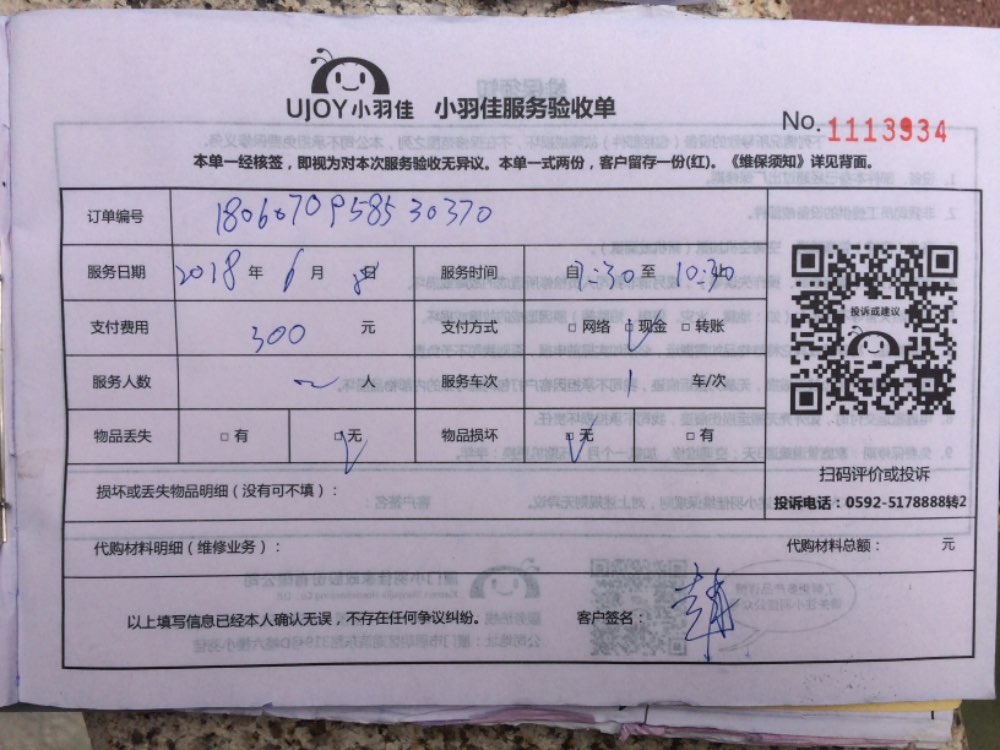 UJOY小羽佳 小羽佳服务验收单
No. 1113934
本单一经核签，即视为对本次服务验收无异议。本单一式两份，客户留存一份(红)。《维保须知》详见背面。
订单编号 1806070958530370
服务日期 2018 年 6 月 8 日 服务时间 自 7:30 至 10:30
支付费用 300 元 支付方式 □ 网络 □ 现金 □ 转账
投诉或建议
服务人数 人 服务车次 1 车/次
物品丢失 □ 有 □ 无 物品损坏 □ 无 □ 有
扫码评价或投诉
损坏或丢失物品明细（没有可不填）：
投诉电话：0592-5178888转2
代购材料明细（维修业务）： 代购材料总额： 元
以上填写信息已经本人确认无误，不存在任何争议纠纷。 客户签名：